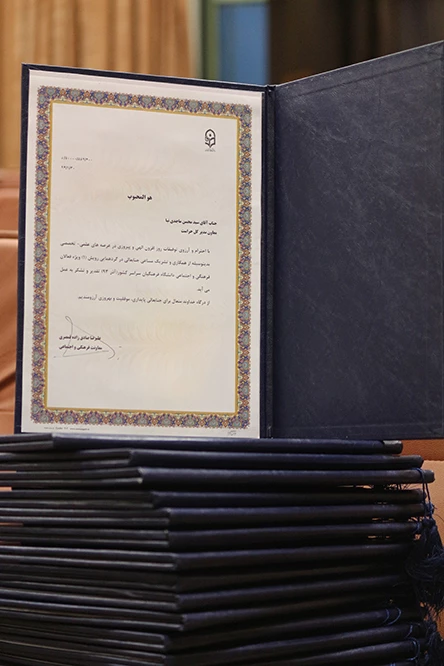 هو المحبوب
جناب آقای سید محسن ماجدی نیا
معاون مدیر کل حراست
با احترام و آرزوی توفیقات روز افزون الهی و پیروزی در عرصه های علمی- تخصصی
بدینوسیله از همکاری و تشریک مساعی جنابعالی در گردهمایی رویش (۱) ویژه فعالان
فرهنگی و اجتماعی دانشگاه فرهنگیان سراسر کشور(آذر ۹۳) تقدیر و تشکر به عمل
می آید.
از درگاه خداوند متعال برای جنابعالی پایداری، موفقیت و بهروزی آرزومندیم.
علیرضا صادق زاده قمصری
معاونت فرهنگی و اجتماعی